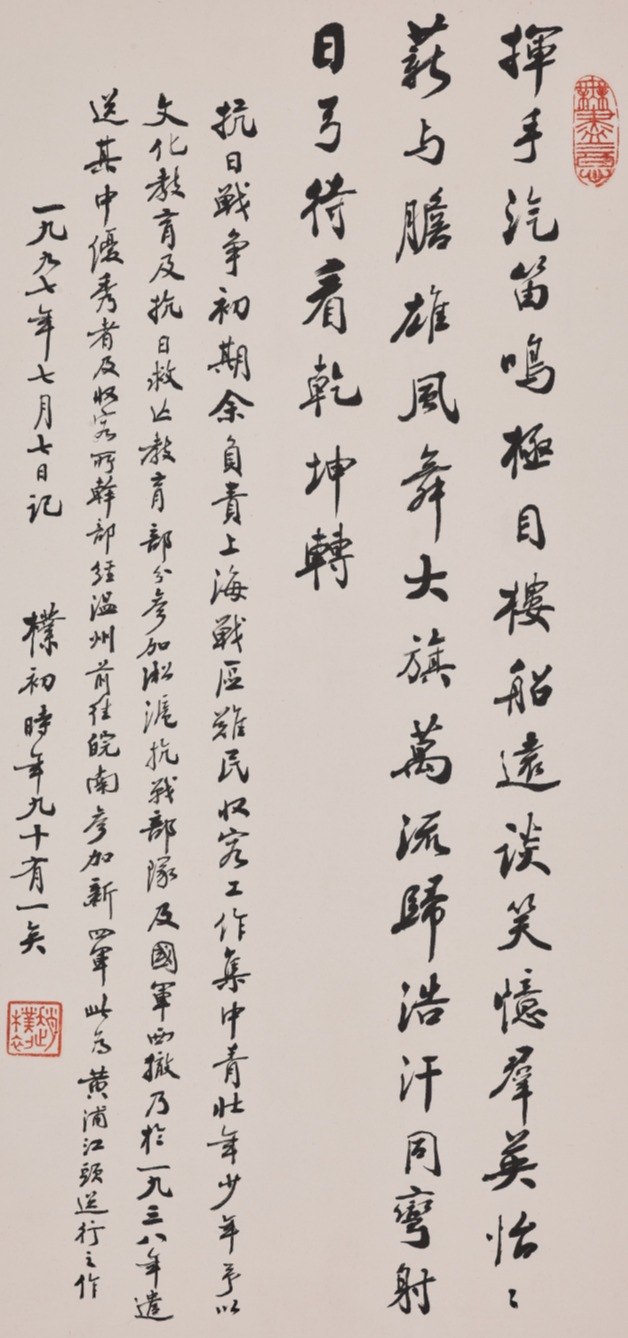 揮手汽笛鳴極目樓船遠談笑憶羣英怡〻
薪与膽雄風舞大旗萬流歸浩汗同彎射
日弓待看乾坤轉
抗日戰争初期余負責上海戰區難民収容工作集中青壯年少年予以
文化教育及抗日救亡教育部分參加淞滬抗戰部隊及國軍西撤乃於一九三八年遣
送其中優秀者及収容所幹部経温州前往皖南參加新四軍此爲黄浦江頭送行之作
一九九七年七月七日記
樸初時年九十有一矣
趙樸初
無盡意